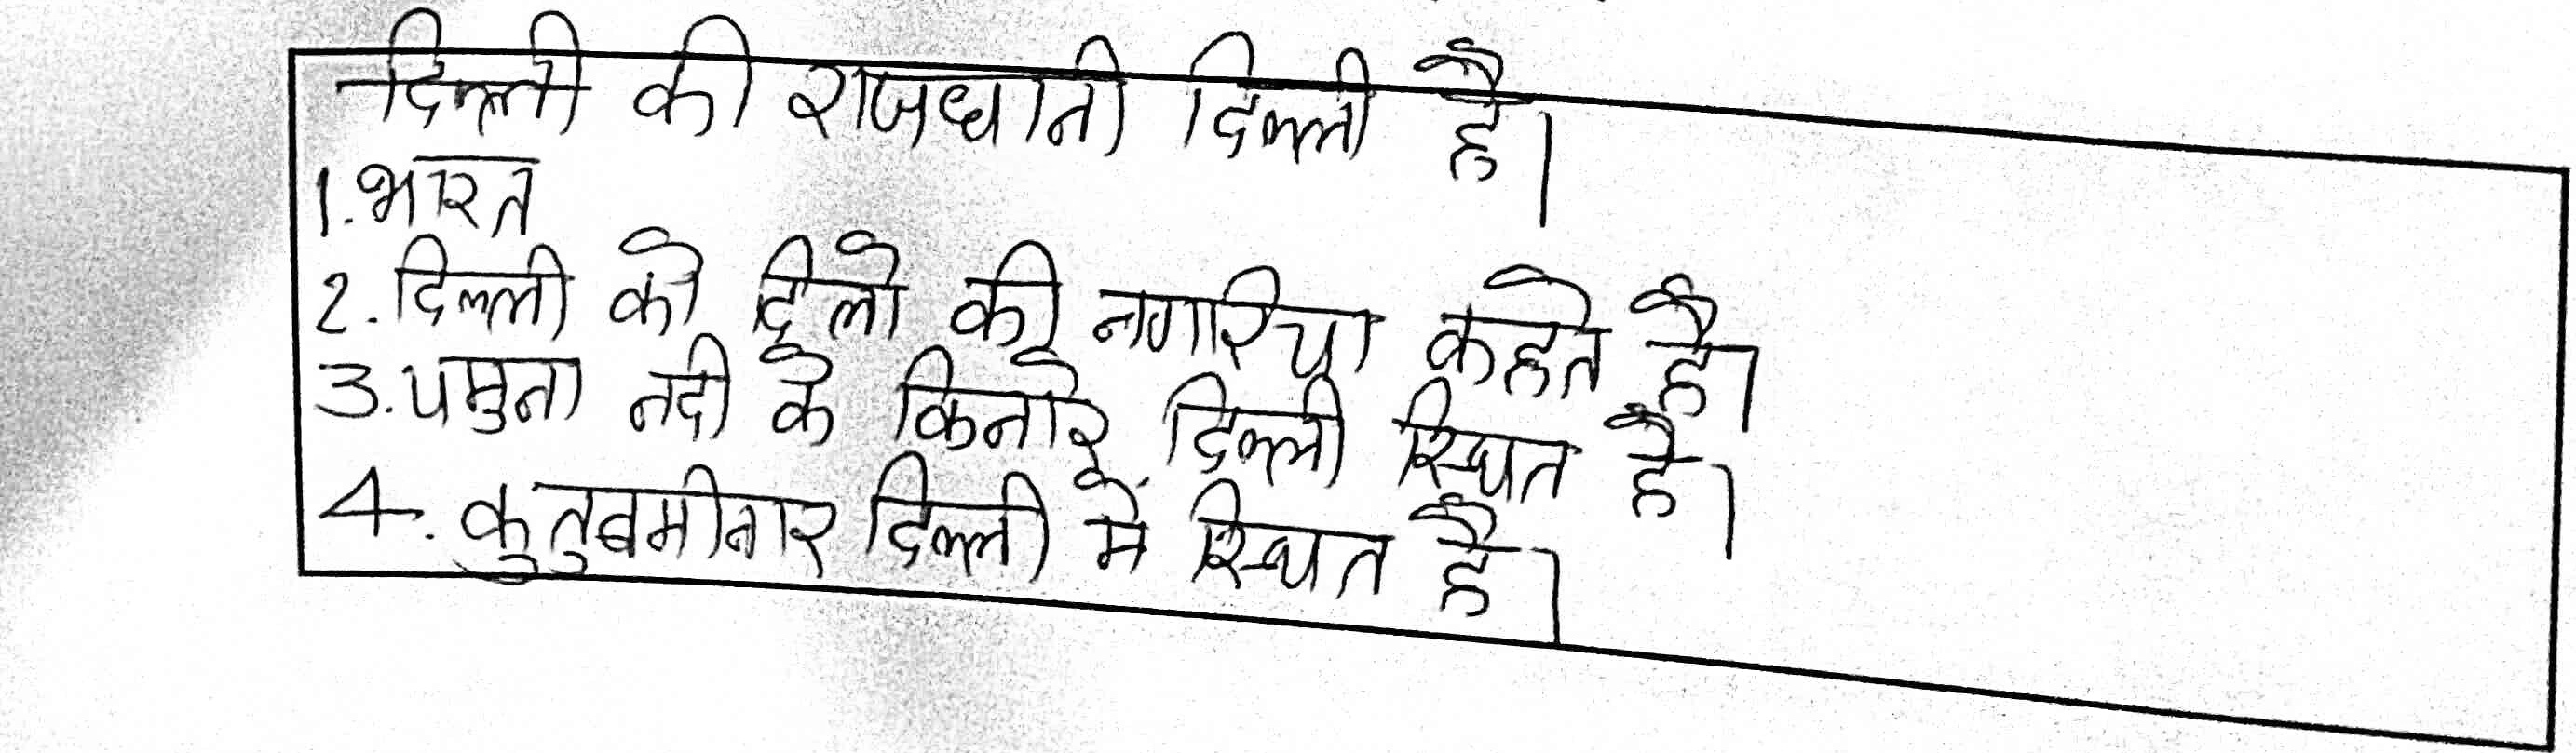 दिल्ली की राजधानी दिल्ली है।
1. भारत
2. दिल्ली को दिलो की नगरिया कहते है।
3. यमुना नदी के किनारे दिल्ली स्थित है।
4. कुतुबमीनार दिल्ली में स्थित है।